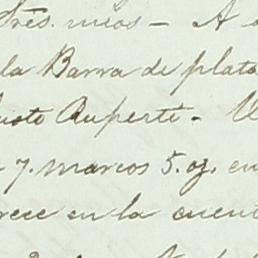 Tres. meos - A
la Barra de plata
usto Ruperti. - U
7. marcos 5. oz. en
rece en la cuent